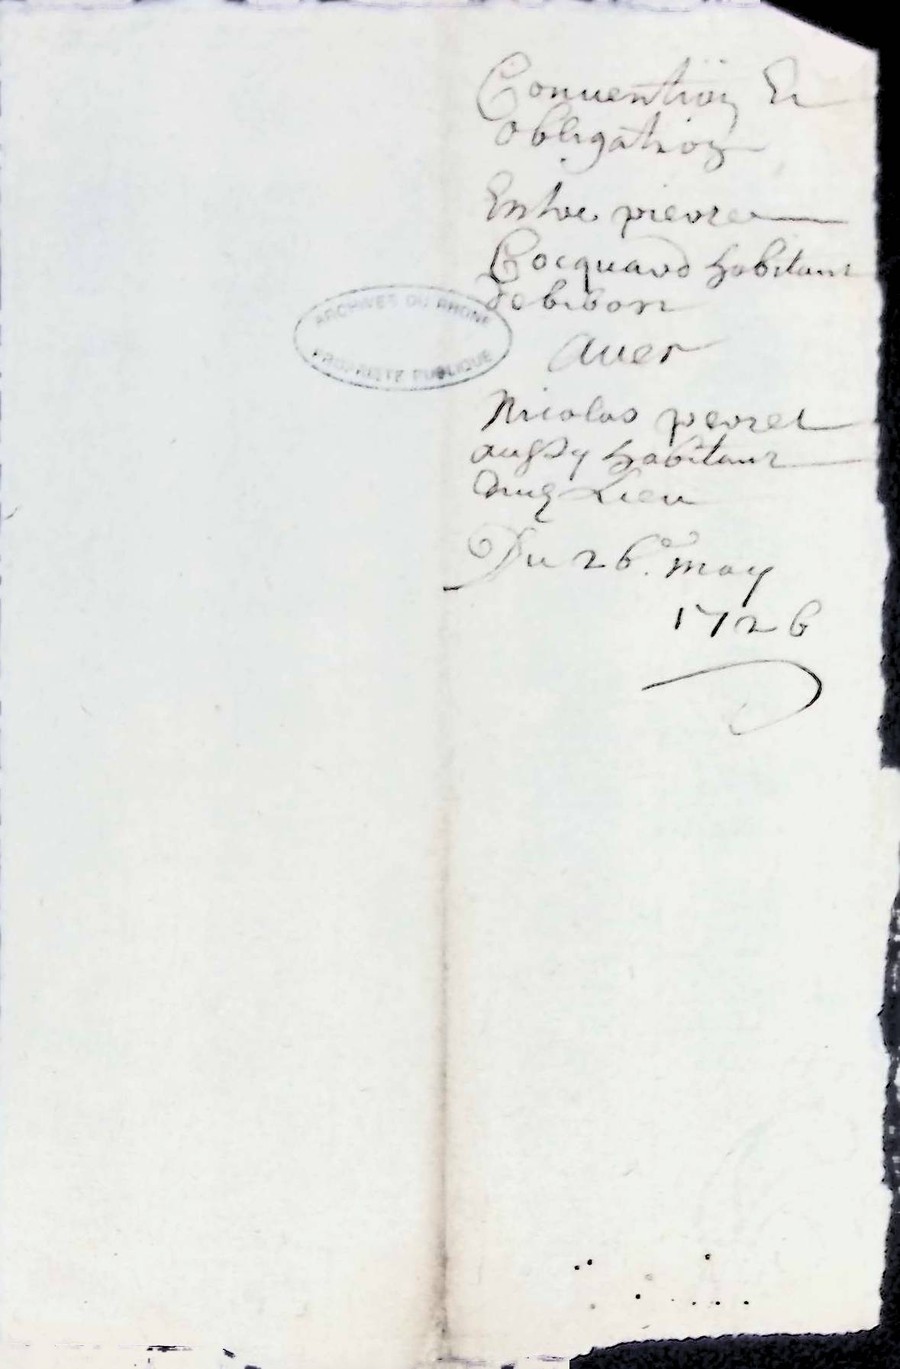 Conuention Et
obligation
Entre pierre
Cocquard habitant
de bibost
auec
Nicolas perret
aussy habitant
Lieu
Du 26.e may
1726
ARCHIVES DU RHONE
PROPRIETE PUBLIQUE